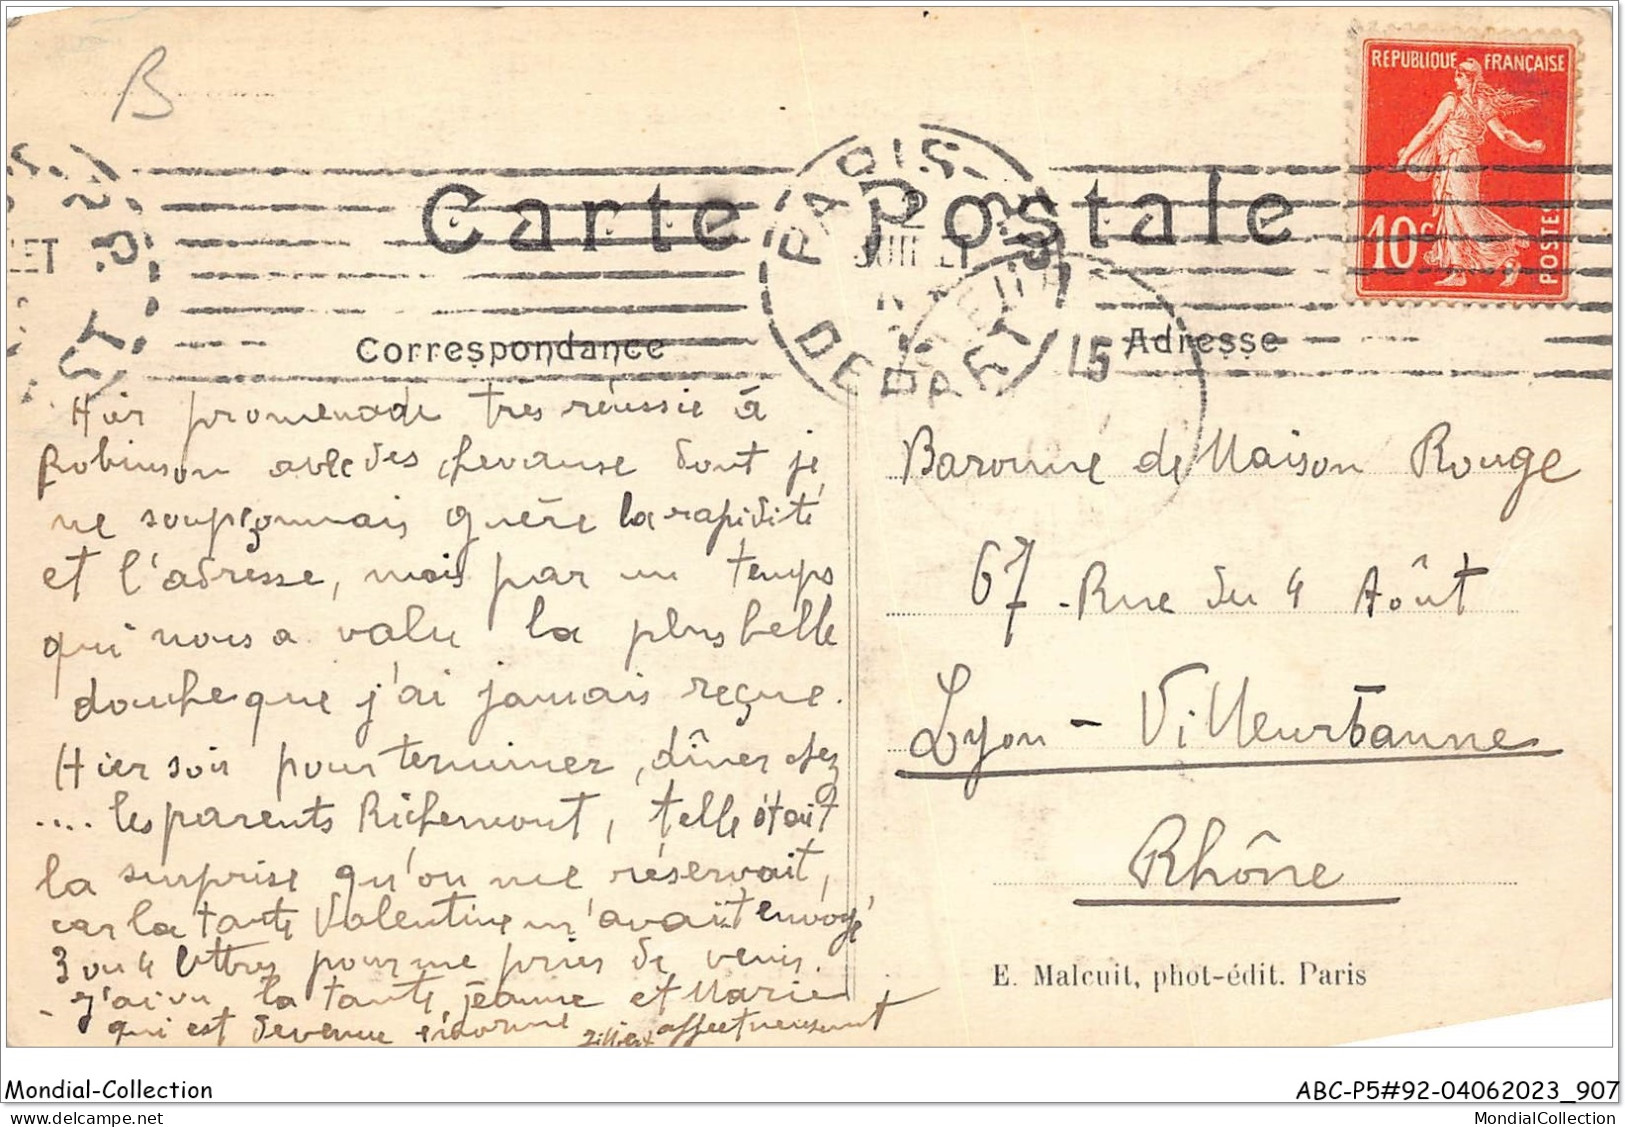 B
REPUBLIQUE FRANÇAISE
10c
POSTES
PARIS
12
JUIL
DEPART
15
Carte Postale
Correspondance
Adresse
Hier promenade très réussie à
Robinson avec des chevause dont je
ne soupçonnais guère la rapidité
et l'adresse, mais par un temps
qui nous a valu la plus belle
douche que j'ai jamais reçue.
Hier soir pour terminer, dîner chez
.... les parents Richemont, telle était
la surprise qu'on me réservait,
car la tante Valentine m'avait envoyé
3 ou 4 lettres pour me prier de venir.
J'ai vu la tante jeanne et Marie
qui est devenue énorme
affectueusement
Baronne de Maison Rouge
67 - Rue du 4 Août
Lyon - Villeurbanne
Rhône
E. Malcuit, phot-édit. Paris
Mondial-Collection
ABC-P5#92-04062023_907
abc collection
MondialCollection